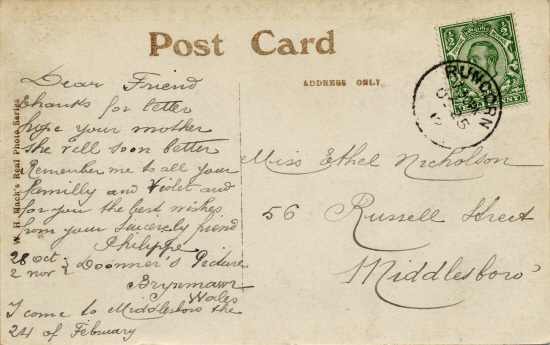 Post Card
ADDRESS ONLY
W. H. Mack's Real Photo Series
Dear Friend
thanks for letter
hope your mother
she vill soon better
Remember me to all your
familly and Violet and
for you the best wishes
from your Sincerely friend
Philippe
28 oct
2 nov } Doorner's Picture
Brynmawr
Wales
I come to Middlesboro the
24 of February
Miss Ethel Nicholson
56 Russell Street
Middlesboro'
RUNCORN
OC 25
12